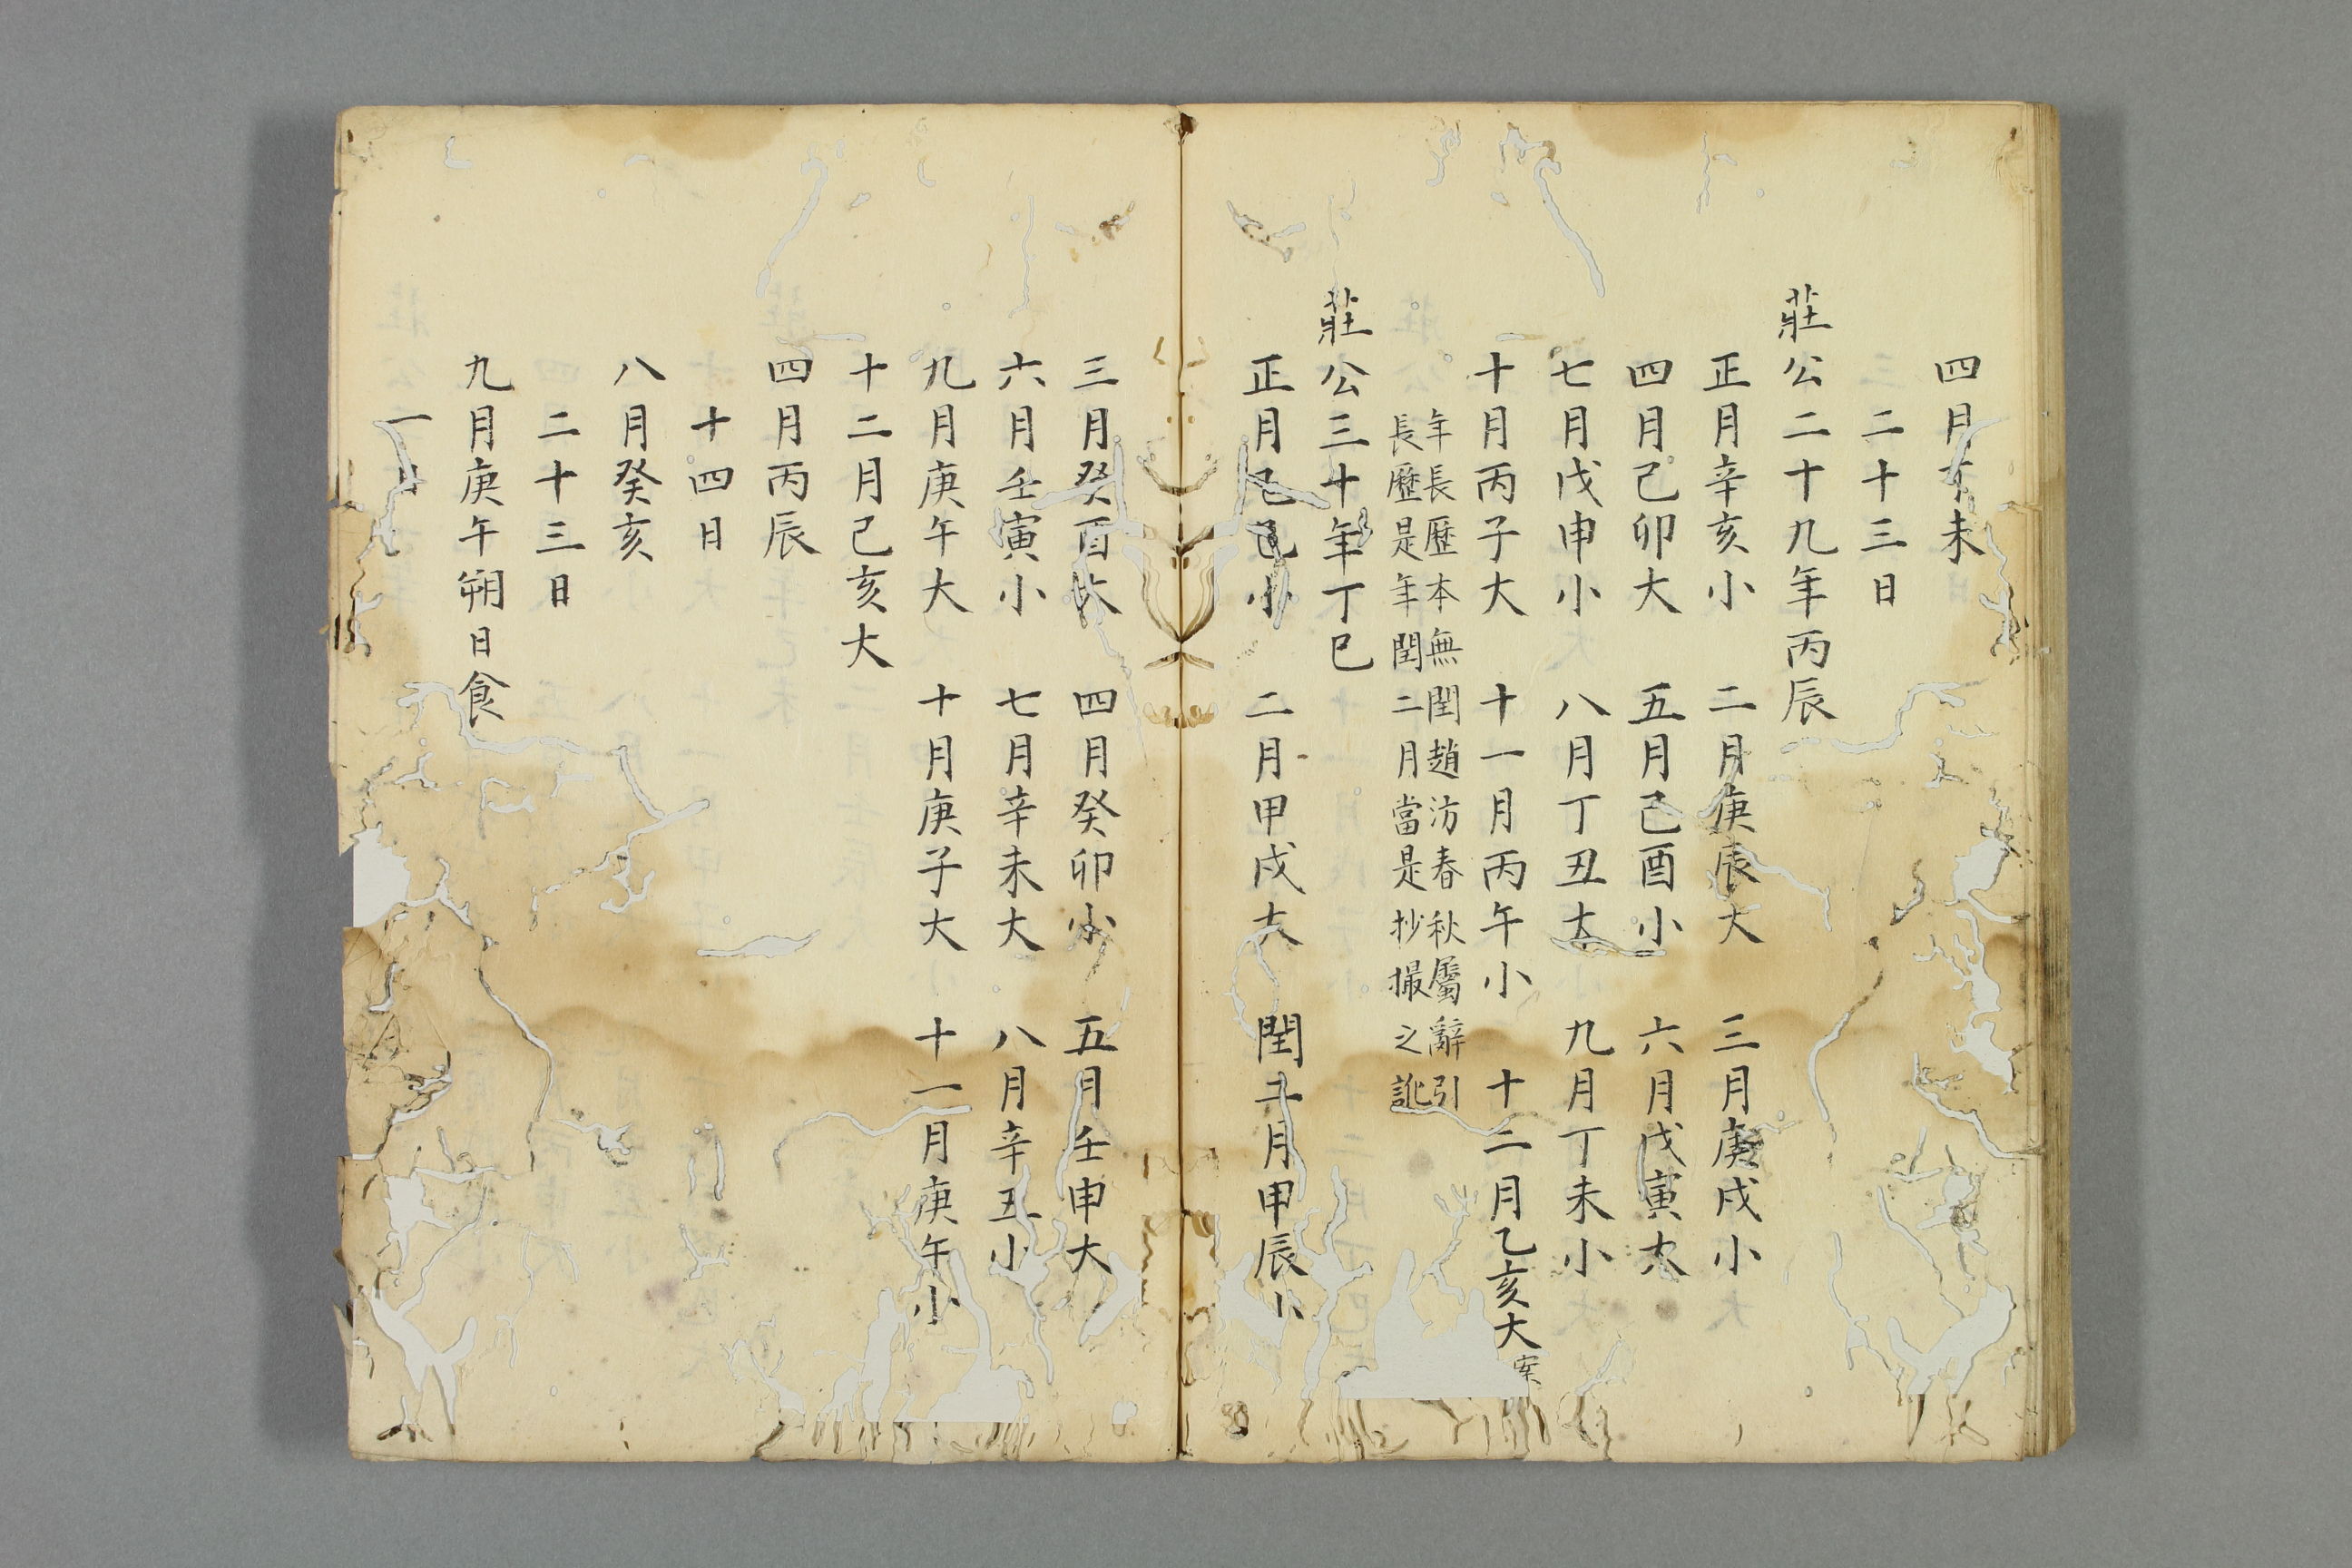 四月丁未
二十三日
莊公二十九年丙辰
正月辛亥小 二月庚辰大 三月庚戌小
四月己卯大 五月己酉小 六月戊寅大
七月戊申小 八月丁丑大 九月丁未小
十月丙子大 十一月丙午小 十二月乙亥大 案
年長歷本無閏趙汸春秋屬辭引
長歷是年閏二月當是抄撮之訛
莊公三十年丁巳
正月 小 二月甲戌大 閏二月甲辰小
三月癸酉大 四月癸卯小 五月壬申大
六月壬寅小 七月辛未大 八月辛丑小
九月庚午大 十月庚子大 十一月庚午小
十二月己亥大
四月丙辰
十四日
八月癸亥
二十三日
九月庚午朔日食
一日